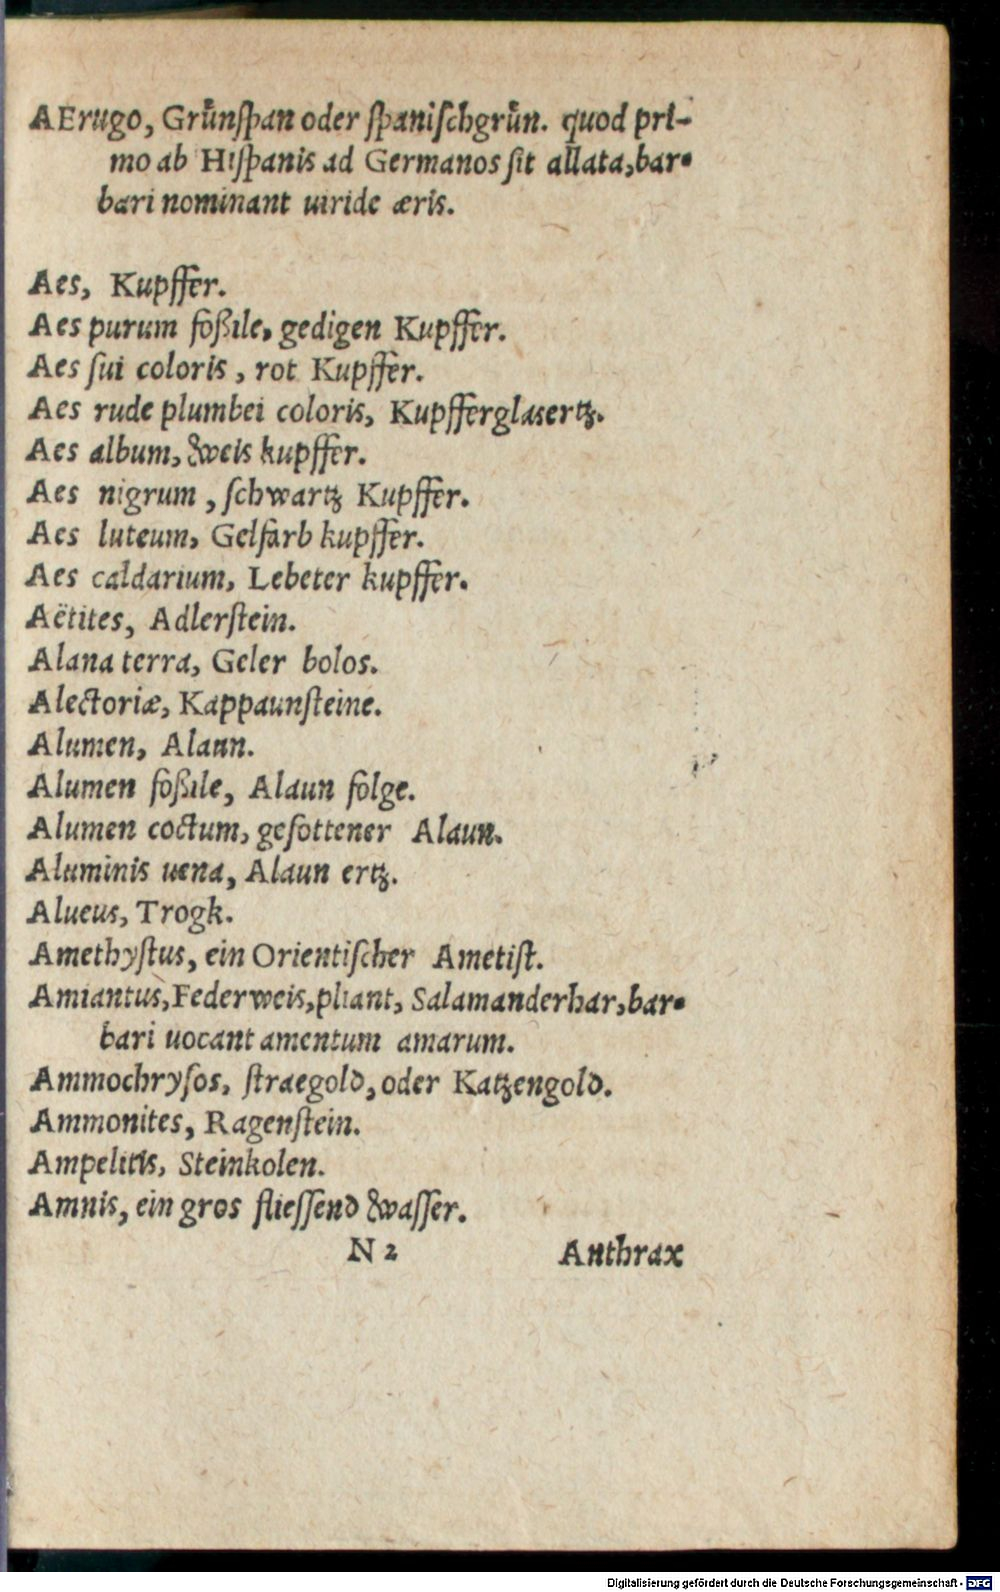 AErugo, Grůnſpan oder ſpaniſchgrůn. quod pri-
mo ab Hiſpanis ad Germanos ſit allata, bar-
bari nominant uiride æris.
Aes, Kupffer.
Aes purum foßile, gedigen Kupffer.
Aes ſui coloris, rot Kupffer.
Aes rude plumbei coloris, Kupfferglasertz.
Aes album, weis kupffer.
Aes nigrum, ſchwartz Kupffer.
Aes luteum, Gelfarb kupffer.
Aes caldarium, Lebeter kupffer.
Aëtites, Adlerſtein.
Alana terra, Geler bolos.
Alectoriæ, Kappaunſteine.
Alumen, Alaun.
Alumen foßile, Alaun folge.
Alumen coctum, geſottener Alaun.
Aluminis uena, Alaun ertz.
Alueus, Trogk.
Amethyſtus, ein Orientiſcher Ametiſt.
Amiantus, Federweis, pliant, Salamanderhar, bar-
bari uocant amentum amarum.
Ammochryſos, ſtraegold, oder Katzengold.
Ammonites, Ragenſtein.
Ampelitis, Steinkolen.
Amnis, ein gros flieſſend waſſer.
N 2 Anthrax
Digitalisierung gefördert durch die Deutsche Forschungsgemeinschaft - DFG